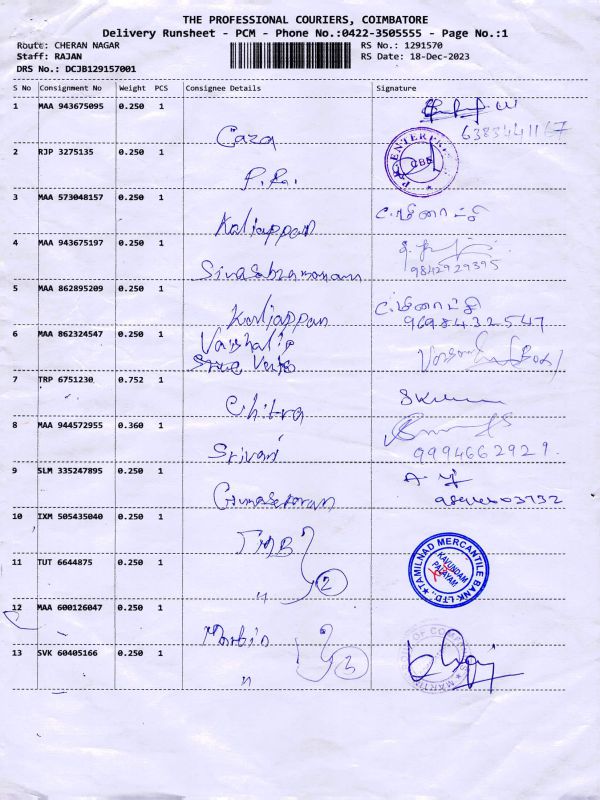 THE PROFESSIONAL COURIERS, COIMBATORE
Delivery Runsheet - PCM - Phone No.:0422-3505555 - Page No.:1
Route: CHERAN NAGAR
RS No.: 1291570
Staff: RAJAN
RS Date: 18-Dec-2023
DRS No.: DCJB129157001
S No Consignment No Weight PCS Consignee Details Signature
1 MAA 943675095 0.250 1
Caza 6383441167
2 RJP 3275135 0.250 1
P.R.
3 MAA 573048157 0.250 1
Kaliappan C. மீனாட்சி
4 MAA 943675197 0.250 1
Sivasubramaniam 9842929395
5 MAA 862895209 0.250 1
Kaliappan C. மீனாட்சி
9698432547
6 MAA 862324547 0.250 1
Vaishali
7 TRP 6751230 0.752 1
Chitra
8 MAA 944572955 0.360 1
Srivani 9994662921.
9 SLM 335247895 0.250 1
Gunasekaran
10 IXM 505435040 0.250 1
TMB
TAMILNAD MERCANTILE BANK LTD.,
KAVUNDAM PALAYAM
11 TUT 6644875 0.250 1
" 2
12 MAA 600126047 0.250 1
Martin
13 SVK 60405166 0.250 1
" 3